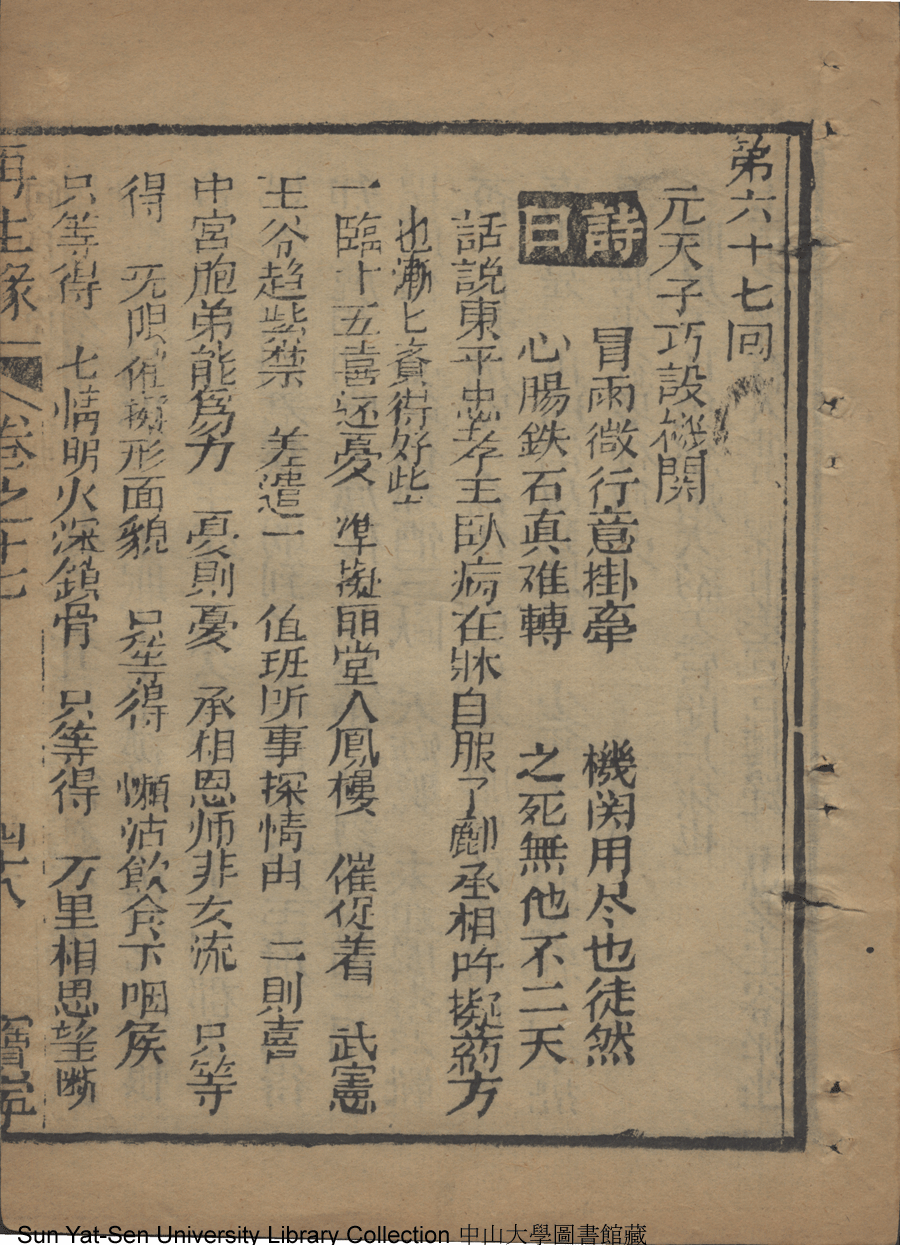 第六十七回
元天子巧設機関
詩曰
冒雨微行意掛牽 機関用尽也徒然
心腸鉄石真难轉 之死無他不二天
話説東平忠孝王臥病在牀自服了酈丞相所擬葯方
也漸匕覚得好些
一臨十五喜还憂 準擬丽堂入鳳樓 催促着 武憲
王爷趋紫禁 差遣二 值班所事探情由 二則喜
中宮胞弟能爲力 憂則憂 承相恩师非女流 只等
得 无限憔形面貌 只等得 懒沾飲食下咽侯
只等得 七情明火深鎖骨 只等得 万里相思望断
再生緣 卷之十七 四十八 寳
Sun Yat-Sen University Library Collection 中山大學圖書館藏